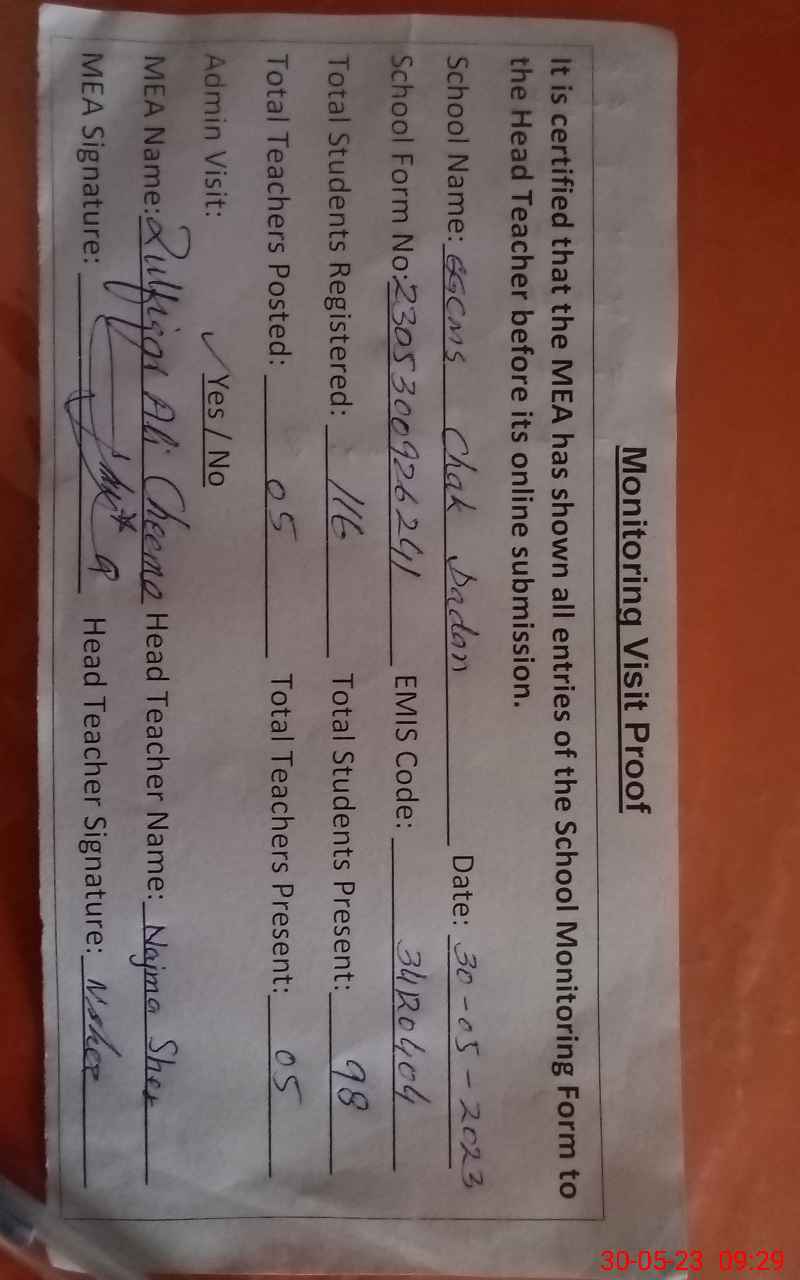 Monitoring Visit Proof
It is certified that the MEA has shown all entries of the School Monitoring Form to
the Head Teacher before its online submission.
School Name: GGCMS Chak Dadan Date: 30-05-2023
School Form No: 2305300926241 EMIS Code: 34120404
Total Students Registered: 116 Total Students Present: 98
Total Teachers Posted: 05 Total Teachers Present: 05
Admin Visit: ✓ Yes / No
MEA Name: Zulfiqar Ali Cheema Head Teacher Name: Najma Sher
MEA Signature: Head Teacher Signature: N.sher
30-05-23 09:29